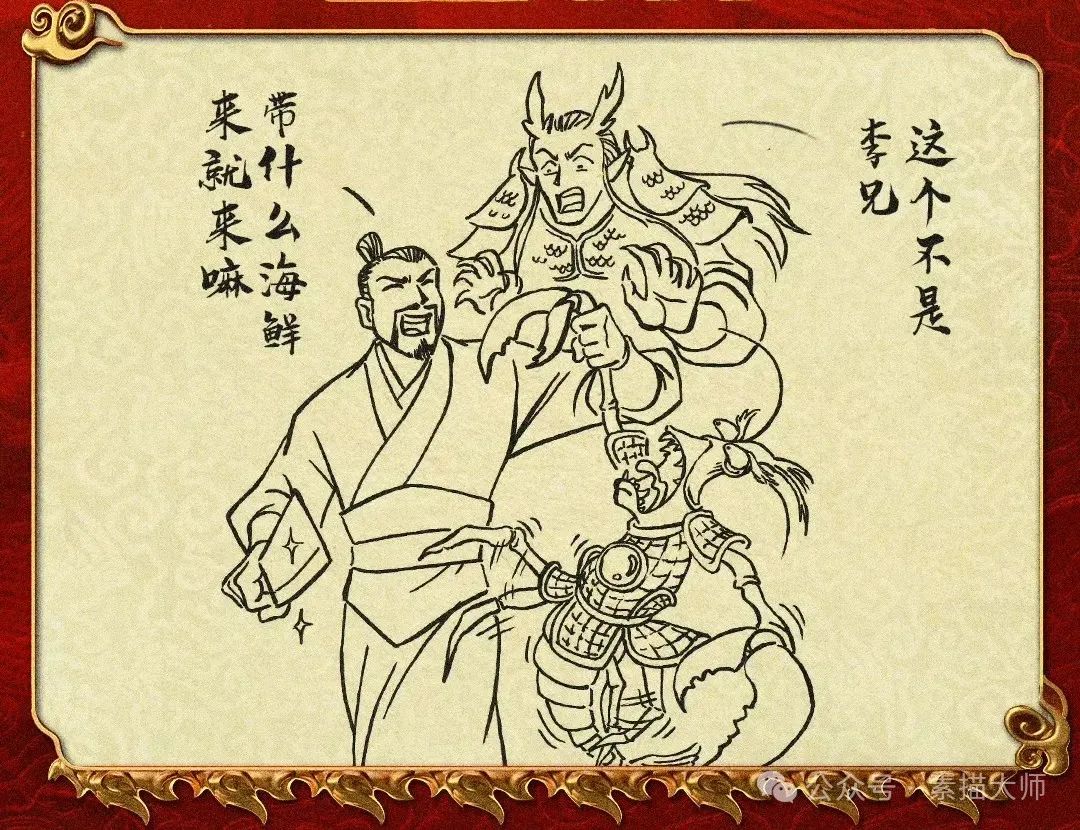 这个不是
李兄
带什么海鲜
来就来嘛
公众号·素描大师